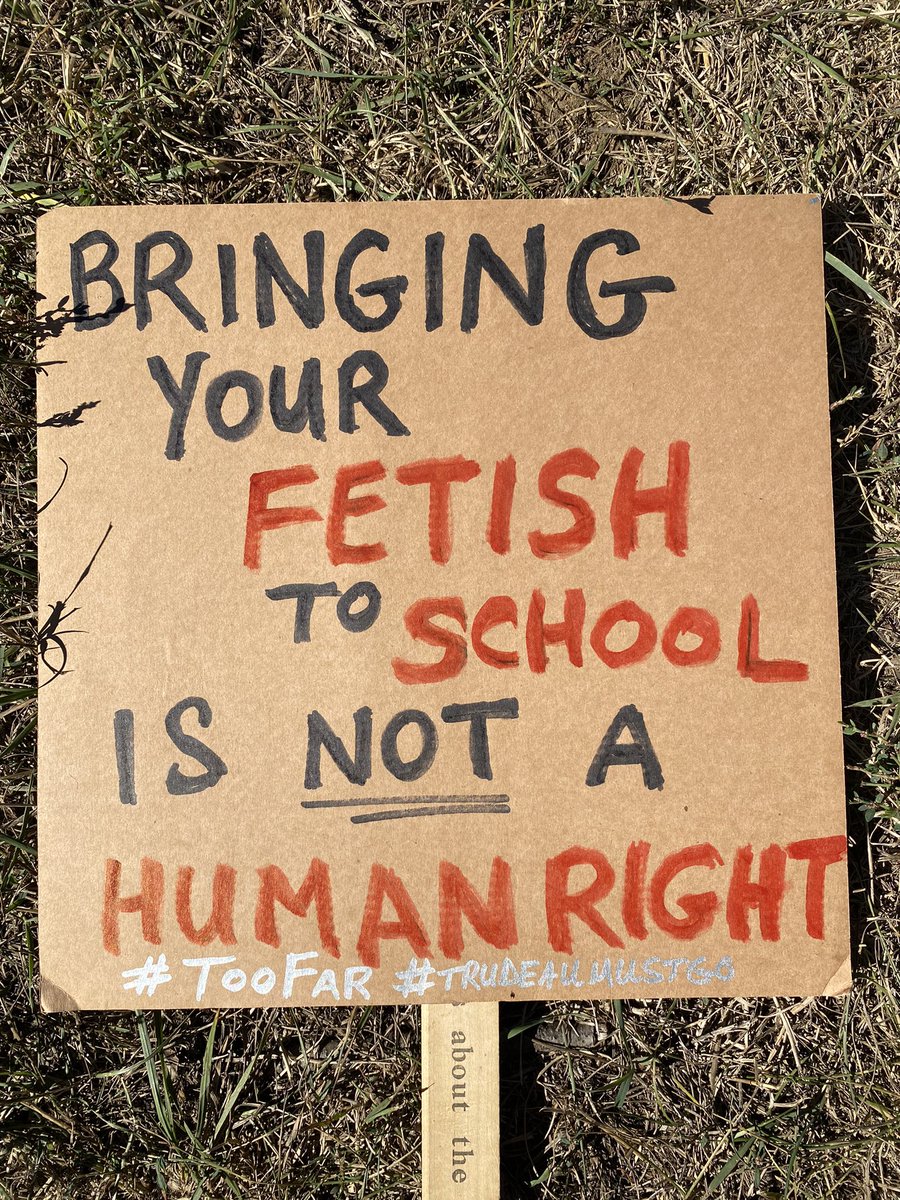 BRINGING
YOUR
FETISH
TO SCHOOL
IS NOT A
HUMAN RIGHT
#TOOFAR #TRUDEAUMUSTGO
about the